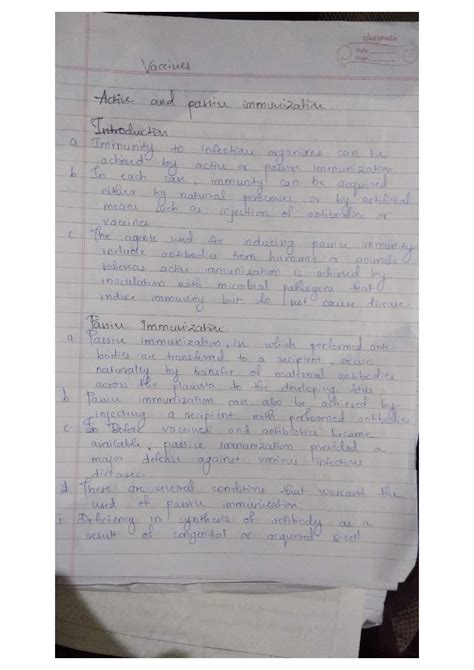 classmate
Date
Page
Vaccines
Active and passive immunization.
Introduction
a Immunity to infectious organisms can be
achievd by active or passive immunization
b In each case, immunity can be acquired
either by natural processes or by artificial
means such as injection of antibodies or
vaccines
c The agents used for inducing passive immunity
include antibodies from humans or animals
whereas active immunization is achieved by
inoculation with microbial pathogens that
induce immunity but do not cause disease
Passive Immunization
a Passive immunization, in which preformed anti-
bodies are transferred to a recipient, occurs
naturally by transfer of maternal antibodies
across the placenta to the developing fetus
b Passive immunization can also be achieved by
injecting a recipient with preformed antibodies
c Before vaccines and antibiotics became
available, passive immunization provided a
major defence against various infectious
diseases
d There are several conditions that warrant the
used of passive immunization:
i Deficiency in synthesis of antibody as a
result of congenital or acquired B cell